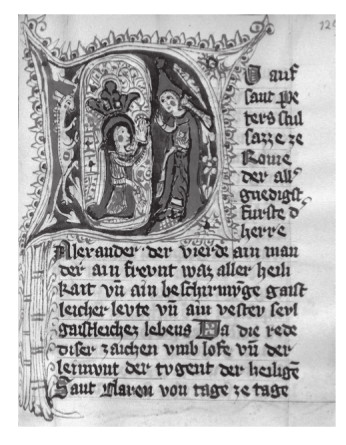 124
DO auf
sant Pe
ters stul
sazze ze
Rome
der all
gnedigst
fürste d
herre
Alexander der vierde ain man
der ain freunt waz aller heili
kait vn̄ ain beschirmyge gaist
leicher levte vn̄ ain vester serl
gaistleichez lebens Da die rede
diser zaichen vmb lofe vn̄ der
leimvnt der tvgent der heiligē
Sant Klaren von tage ze tage